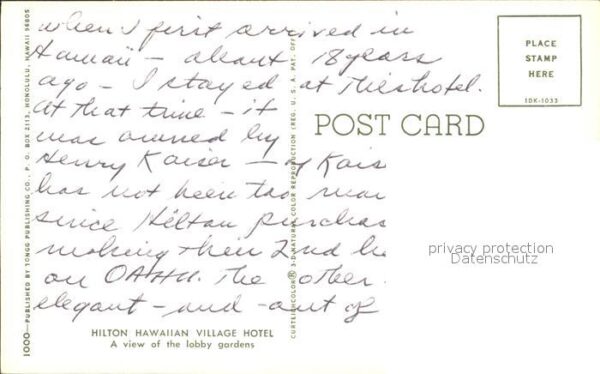 when I first arrived in
Hawaii - about 18 years
ago - I stayed at this hotel.
At that time - it
was owned by
Henry Kaiser - Kais
has not been too
since Hilton purchas
making their 2nd h
on OAHU. The other
elegant - and - out of
PLACE
STAMP
HERE
IDK-1033
POST CARD
privacy protection
Datenschutz
HILTON HAWAIIAN VILLAGE HOTEL
A view of the lobby gardens
1000—PUBLISHED BY SONGG PUBLISHING CO., P. O. BOX 2113, HONOLULU, HAWAII 96805
CURTEICHCOLOR® 3-D NATURAL COLOR REPRODUCTION (REG. U. S. A. PAT. OFF.